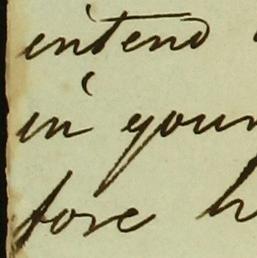 intend
in your
fore h